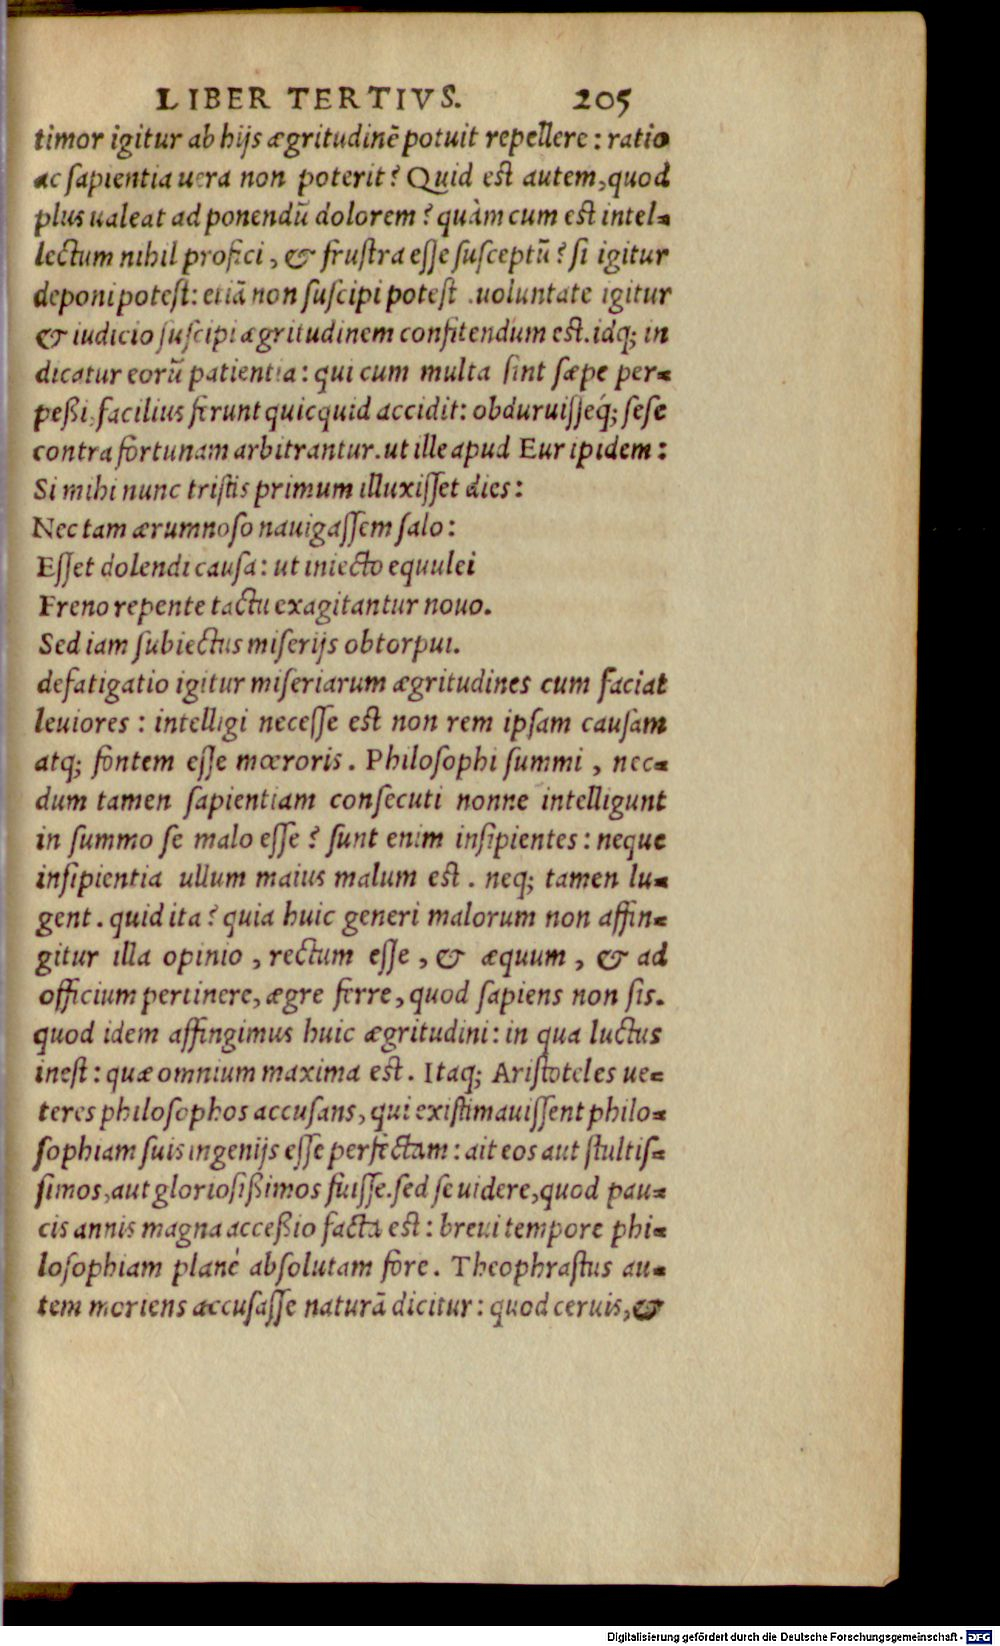 LIBER TERTIVS. 205
timor igitur ab hijs ægritudinē potuit repellere: ratio
ac ſapientia uera non poterit? Quid est autem, quod
plus ualeat ad ponendū dolorem? quàm cum est intel-
lectum nihil profici, & fruſtra eſſe ſuſceptū? ſi igitur
deponi poteſt: etiā non ſuſcipi poteſt .uoluntate igitur
& iudicio ſuſcipi ægritudinem confitendum est. idq; in
dicatur eorū patientia: qui cum multa ſint ſæpe per-
peßi, facilius ferunt quicquid accidit: obduruiſſeq́; ſeſe
contra fortunam arbitrantur. ut ille apud Euripidem:
Si mihi nunc triſtis primum illuxiſſet dies:
Nec tam ærumnoſo nauigaſſem ſalo:
Eſſet dolendi cauſa: ut iniecto equulei
Freno repente tactu exagitantur nouo.
Sed iam ſubiectus miſerijs obtorpui.
defatigatio igitur miſeriarum ægritudines cum faciat
leuiores: intelligi neceſſe est non rem ipſam cauſam
atq; fontem eſſe mœroris. Philoſophi ſummi, nec-
dum tamen ſapientiam conſecuti nonne intelligunt
in ſummo ſe malo eſſe? ſunt enim inſipientes: neque
inſipientia ullum maius malum est. neq; tamen lu-
gent. quid ita? quia huic generi malorum non affin-
gitur illa opinio, rectum eſſe, & æquum, & ad
officium pertinere, ægre ferre, quod ſapiens non ſis.
quod idem affingimus huic ægritudini: in qua luctus
ineſt: quæ omnium maxima est. Itaq; Ariſtoteles ue-
teres philoſophos accuſans, qui exiſtimauiſſent philo-
ſophiam ſuis ingenijs eſſe perfectam: ait eos aut ſtultiſ-
ſimos, aut glorioſißimos fuiſſe. ſed ſe uidere, quod pau-
cis annis magna acceßio facta est: breui tempore phi-
loſophiam planè abſolutam fore. Theophraſtus au-
tem moriens accuſaſſe naturā dicitur: quod ceruis, &
Digitalisierung gefördert durch die Deutsche Forschungsgemeinschaft - DFG